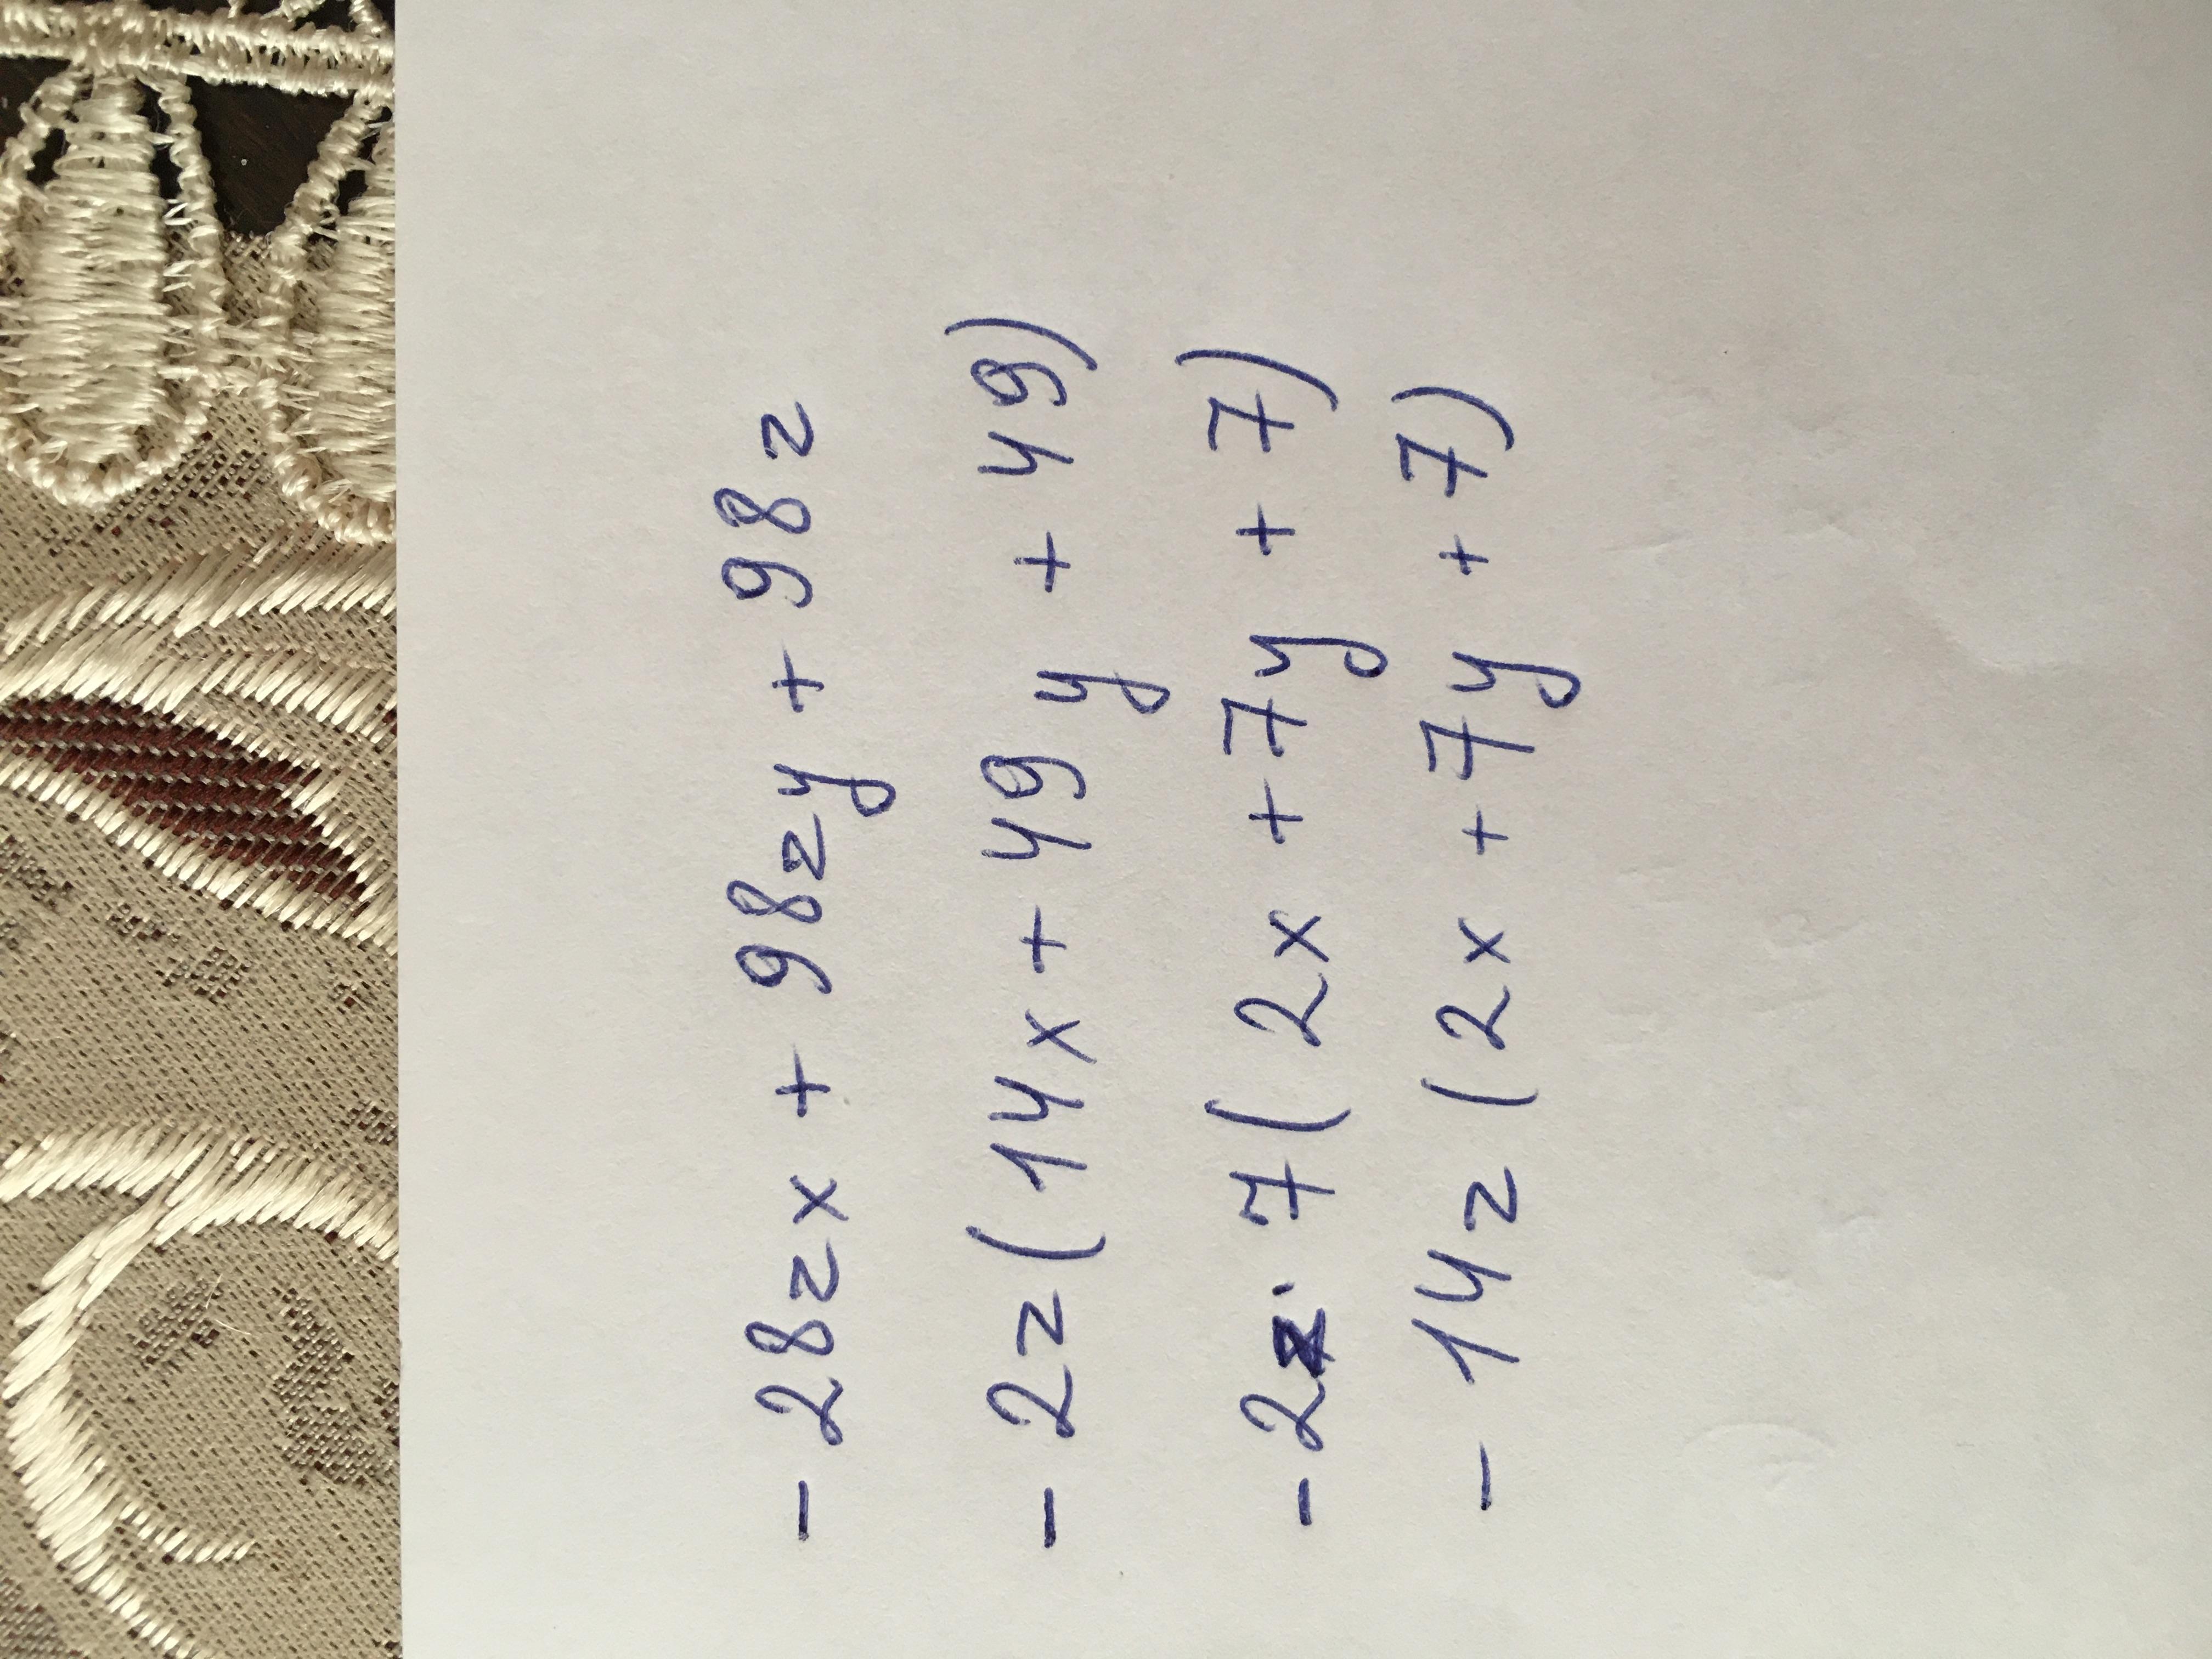 - 28zx + 98zy + 98z
- 2z(14x + 49y + 49)
- 2z · 7(2x + 7y + 7)
- 14z(2x + 7y + 7)